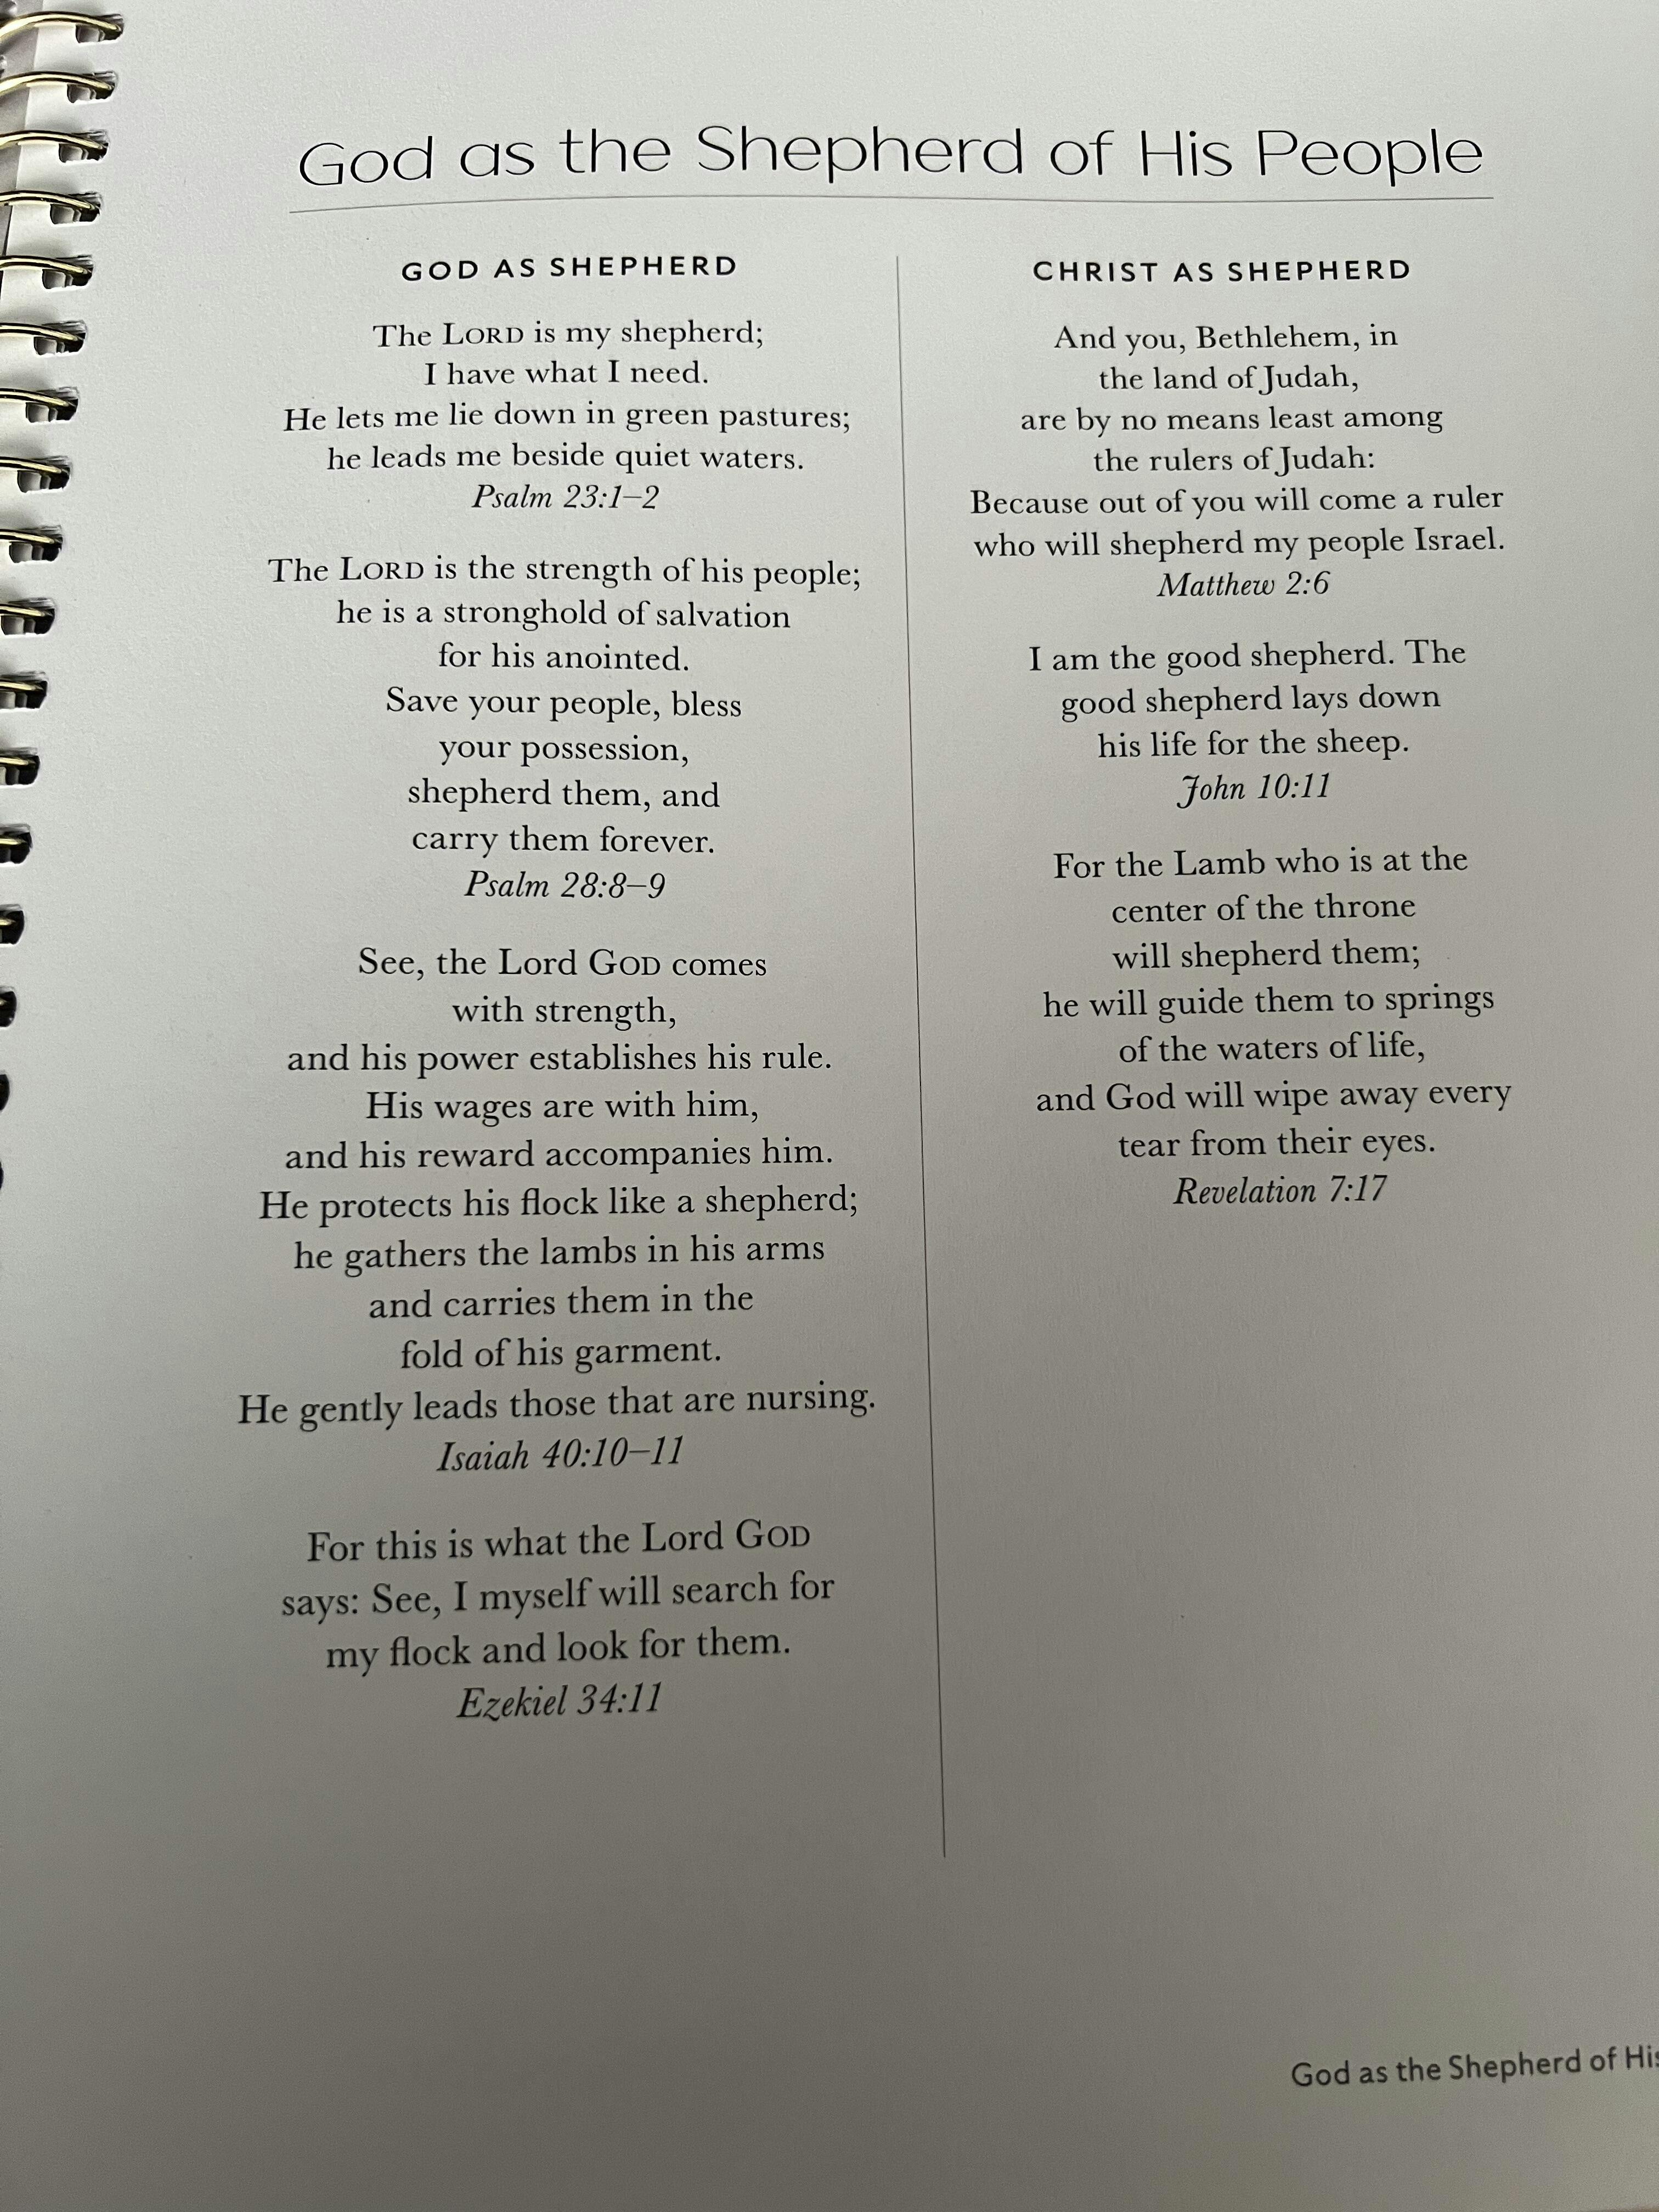 God as the Shepherd of His People
GOD AS SHEPHERD
The LORD is my shepherd;
I have what I need.
He lets me lie down in green pastures;
he leads me beside quiet waters.
Psalm 23:1–2
The LORD is the strength of his people;
he is a stronghold of salvation
for his anointed.
Save your people, bless
your possession,
shepherd them, and
carry them forever.
Psalm 28:8–9
See, the Lord GOD comes
with strength,
and his power establishes his rule.
His wages are with him,
and his reward accompanies him.
He protects his flock like a shepherd;
he gathers the lambs in his arms
and carries them in the
fold of his garment.
He gently leads those that are nursing.
Isaiah 40:10–11
For this is what the Lord GOD
says: See, I myself will search for
my flock and look for them.
Ezekiel 34:11
CHRIST AS SHEPHERD
And you, Bethlehem, in
the land of Judah,
are by no means least among
the rulers of Judah:
Because out of you will come a ruler
who will shepherd my people Israel.
Matthew 2:6
I am the good shepherd. The
good shepherd lays down
his life for the sheep.
John 10:11
For the Lamb who is at the
center of the throne
will shepherd them;
he will guide them to springs
of the waters of life,
and God will wipe away every
tear from their eyes.
Revelation 7:17
God as the Shepherd of His